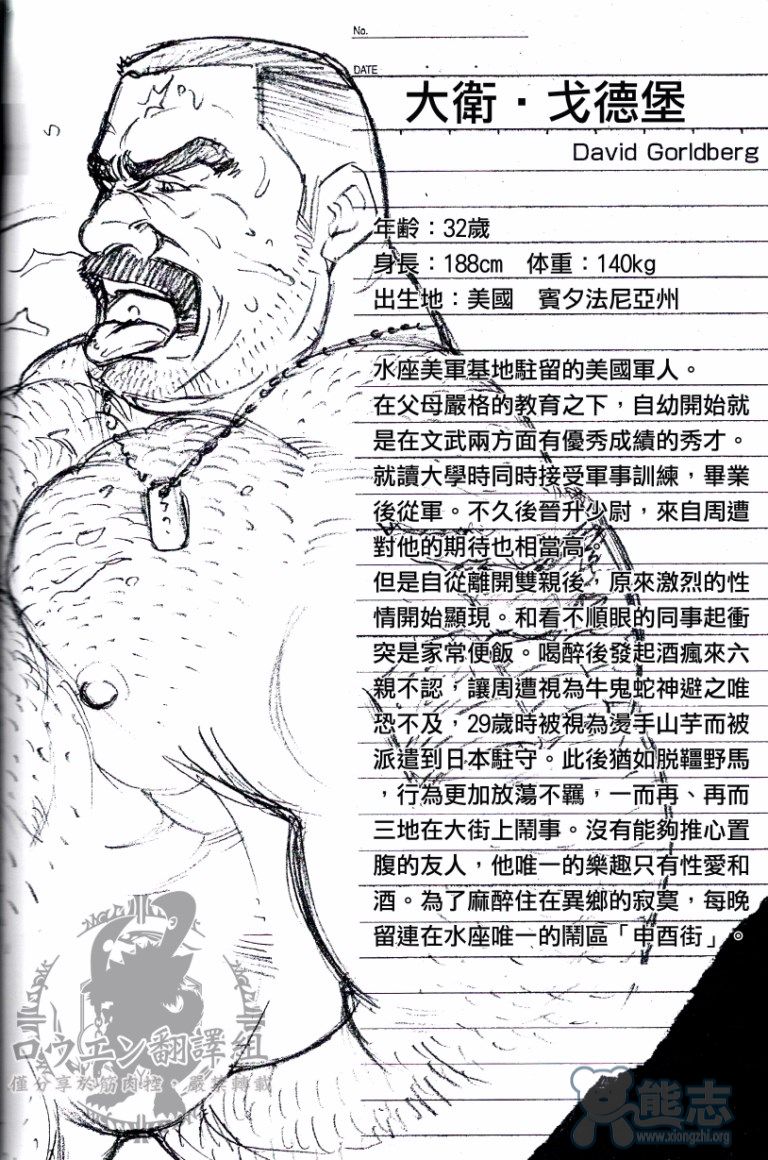 No.
DATE
大衛・戈德堡
David Gorldberg
年齢：32歲
身長：188cm　体重：140kg
出生地：美國　賓夕法尼亞州
水座美軍基地駐留的美國軍人。
在父母嚴格的教育之下，自幼開始就
是在文武兩方面有優秀成績的秀才。
就讀大學時同時接受軍事訓練，畢業
後從軍。不久後晉升少尉，來自周遭
對他的期待也相當高。
但是自從離開雙親後，原來激烈的性
情開始顯現。和看不順眼的同事起衝
突是家常便飯。喝醉後發起酒瘋來六
親不認，讓周遭視為牛鬼蛇神避之唯
恐不及，29歲時被視為燙手山芋而被
派遣到日本駐守。此後猶如脱韁野馬
，行為更加放蕩不羈，一而再、再而
三地在大街上鬧事。沒有能夠推心置
腹的友人，他唯一的樂趣只有性愛和
酒。為了麻醉住在異鄉的寂寞，每晚
留連在水座唯一的鬧區「申酉街」。
ロウエン翻譯組
僅分享於筋肉控，嚴禁轉載
熊志
www.xiongzhi.org